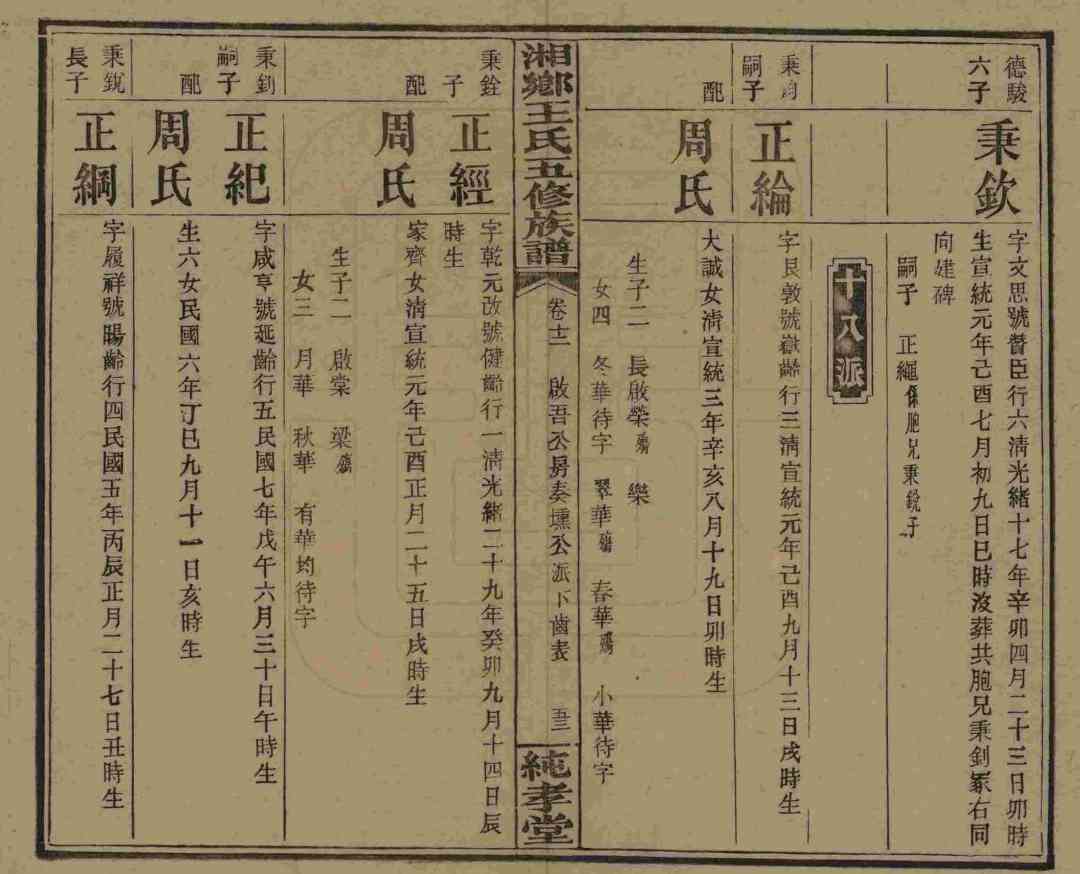 德駿
六子
秉欽
字文思號贊臣行六淸光緒十七年辛卯四月二十三日卯時
生宣統元年己酉七月初九日巳時沒葬共胞兄秉釗冢右同
向建碑
嗣子 正繩係胞兄秉銳子
十八派
秉鈞
嗣子
正綸
字艮敦號嶽齡行三淸宣統元年己酉九月十三日戌時生
配
周氏
大誠女淸宣統三年辛亥八月十九日卯時生
生子二 長啟榮殤 樂
女四 冬華待字 翠華殤 春華殤 小華待字
湘鄉王氏五修族譜
卷十二 啟吾公房奏壎公派下齒表
純孝堂
秉銓
子
正經
字乾元改號健齡行一淸光緒二十九年癸卯九月十四日辰
時生
配
周氏
家齊女淸宣統元年己酉正月二十五日戌時生
生子二 啟棠 梁殤
女三 月華 秋華 有華均待字
秉釗
嗣子
正紀
字咸亨號延齡行五民國七年戊午六月三十日午時生
配
周氏
生六女民國六年丁巳九月十一日亥時生
秉銳
長子
正綱
字履祥號暘齡行四民國五年丙辰正月二十七日丑時生